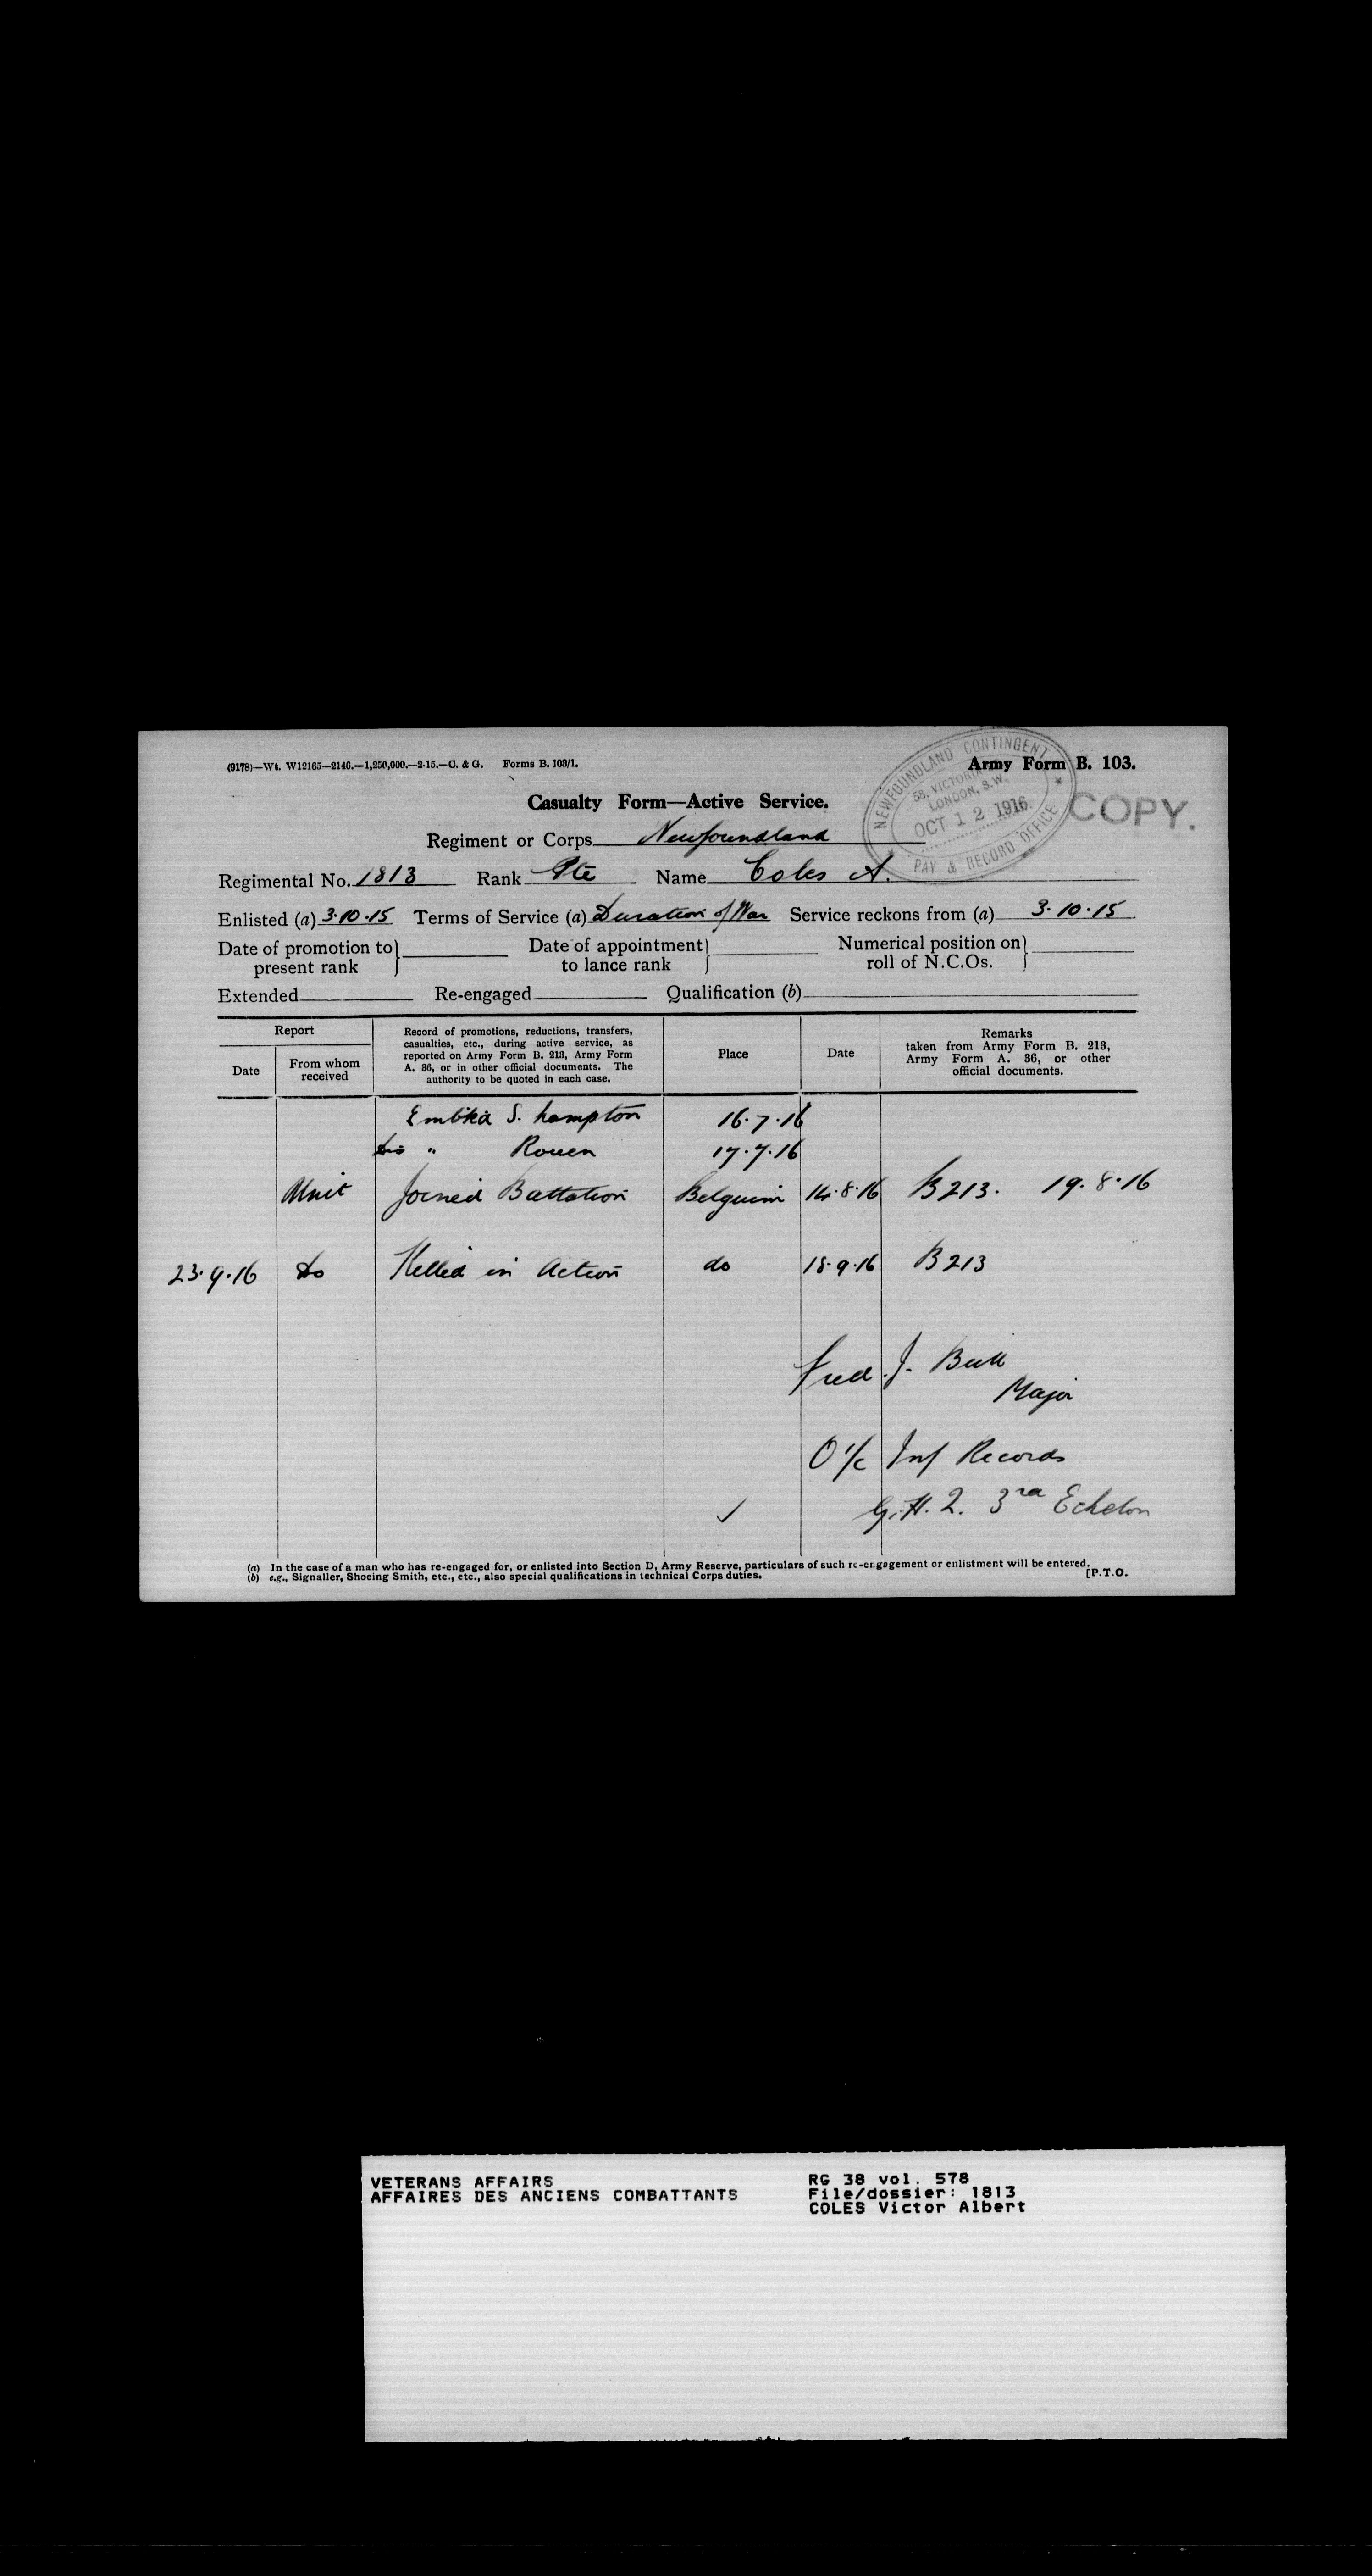 (9178)—Wt. W12165—2146.—1,250,000.—2-15.—C. & G. Forms B. 103/1.
Army Form B. 103.
NEWFOUNDLAND CONTINGENT
58, VICTORIA
LONDON, S.W.
OCT 12 1916
PAY & RECORD OFFICE
COPY.
Casualty Form—Active Service.
Regiment or Corps Newfoundland
Regimental No. 1813 Rank Pte Name Coles A.
Enlisted (a) 3.10.15 Terms of Service (a) Duration of War Service reckons from (a) 3.10.15
Date of promotion to present rank Date of appointment to lance rank Numerical position on roll of N.C.Os.
Extended Re-engaged Qualification (b)
Report
Date
From whom received
Record of promotions, reductions, transfers,
casualties, etc., during active service, as
reported on Army Form B. 213, Army Form
A. 36, or in other official documents. The
authority to be quoted in each case.
Place
Date
Remarks
taken from Army Form B. 213,
Army Form A. 36, or other
official documents.
Embkd S. hampton 16.7.16
Dis " Rouen 17.7.16
Unit Joined Battalion Belguim 14.8.16 B213. 19.8.16
23.9.16 do Killed in Action do 18.9.16 B213
Fred. J. Bull
Major
O i/c Inf Records
G.H.Q. 3rd Echelon
(a) In the case of a man who has re-engaged for, or enlisted into Section D, Army Reserve, particulars of such re-engagement or enlistment will be entered.
(b) e.g., Signaller, Shoeing Smith, etc., etc., also special qualifications in technical Corps duties.
[P.T.O.
VETERANS AFFAIRS
AFFAIRES DES ANCIENS COMBATTANTS
RG 38 vol. 578
File/dossier: 1813
COLES Victor Albert